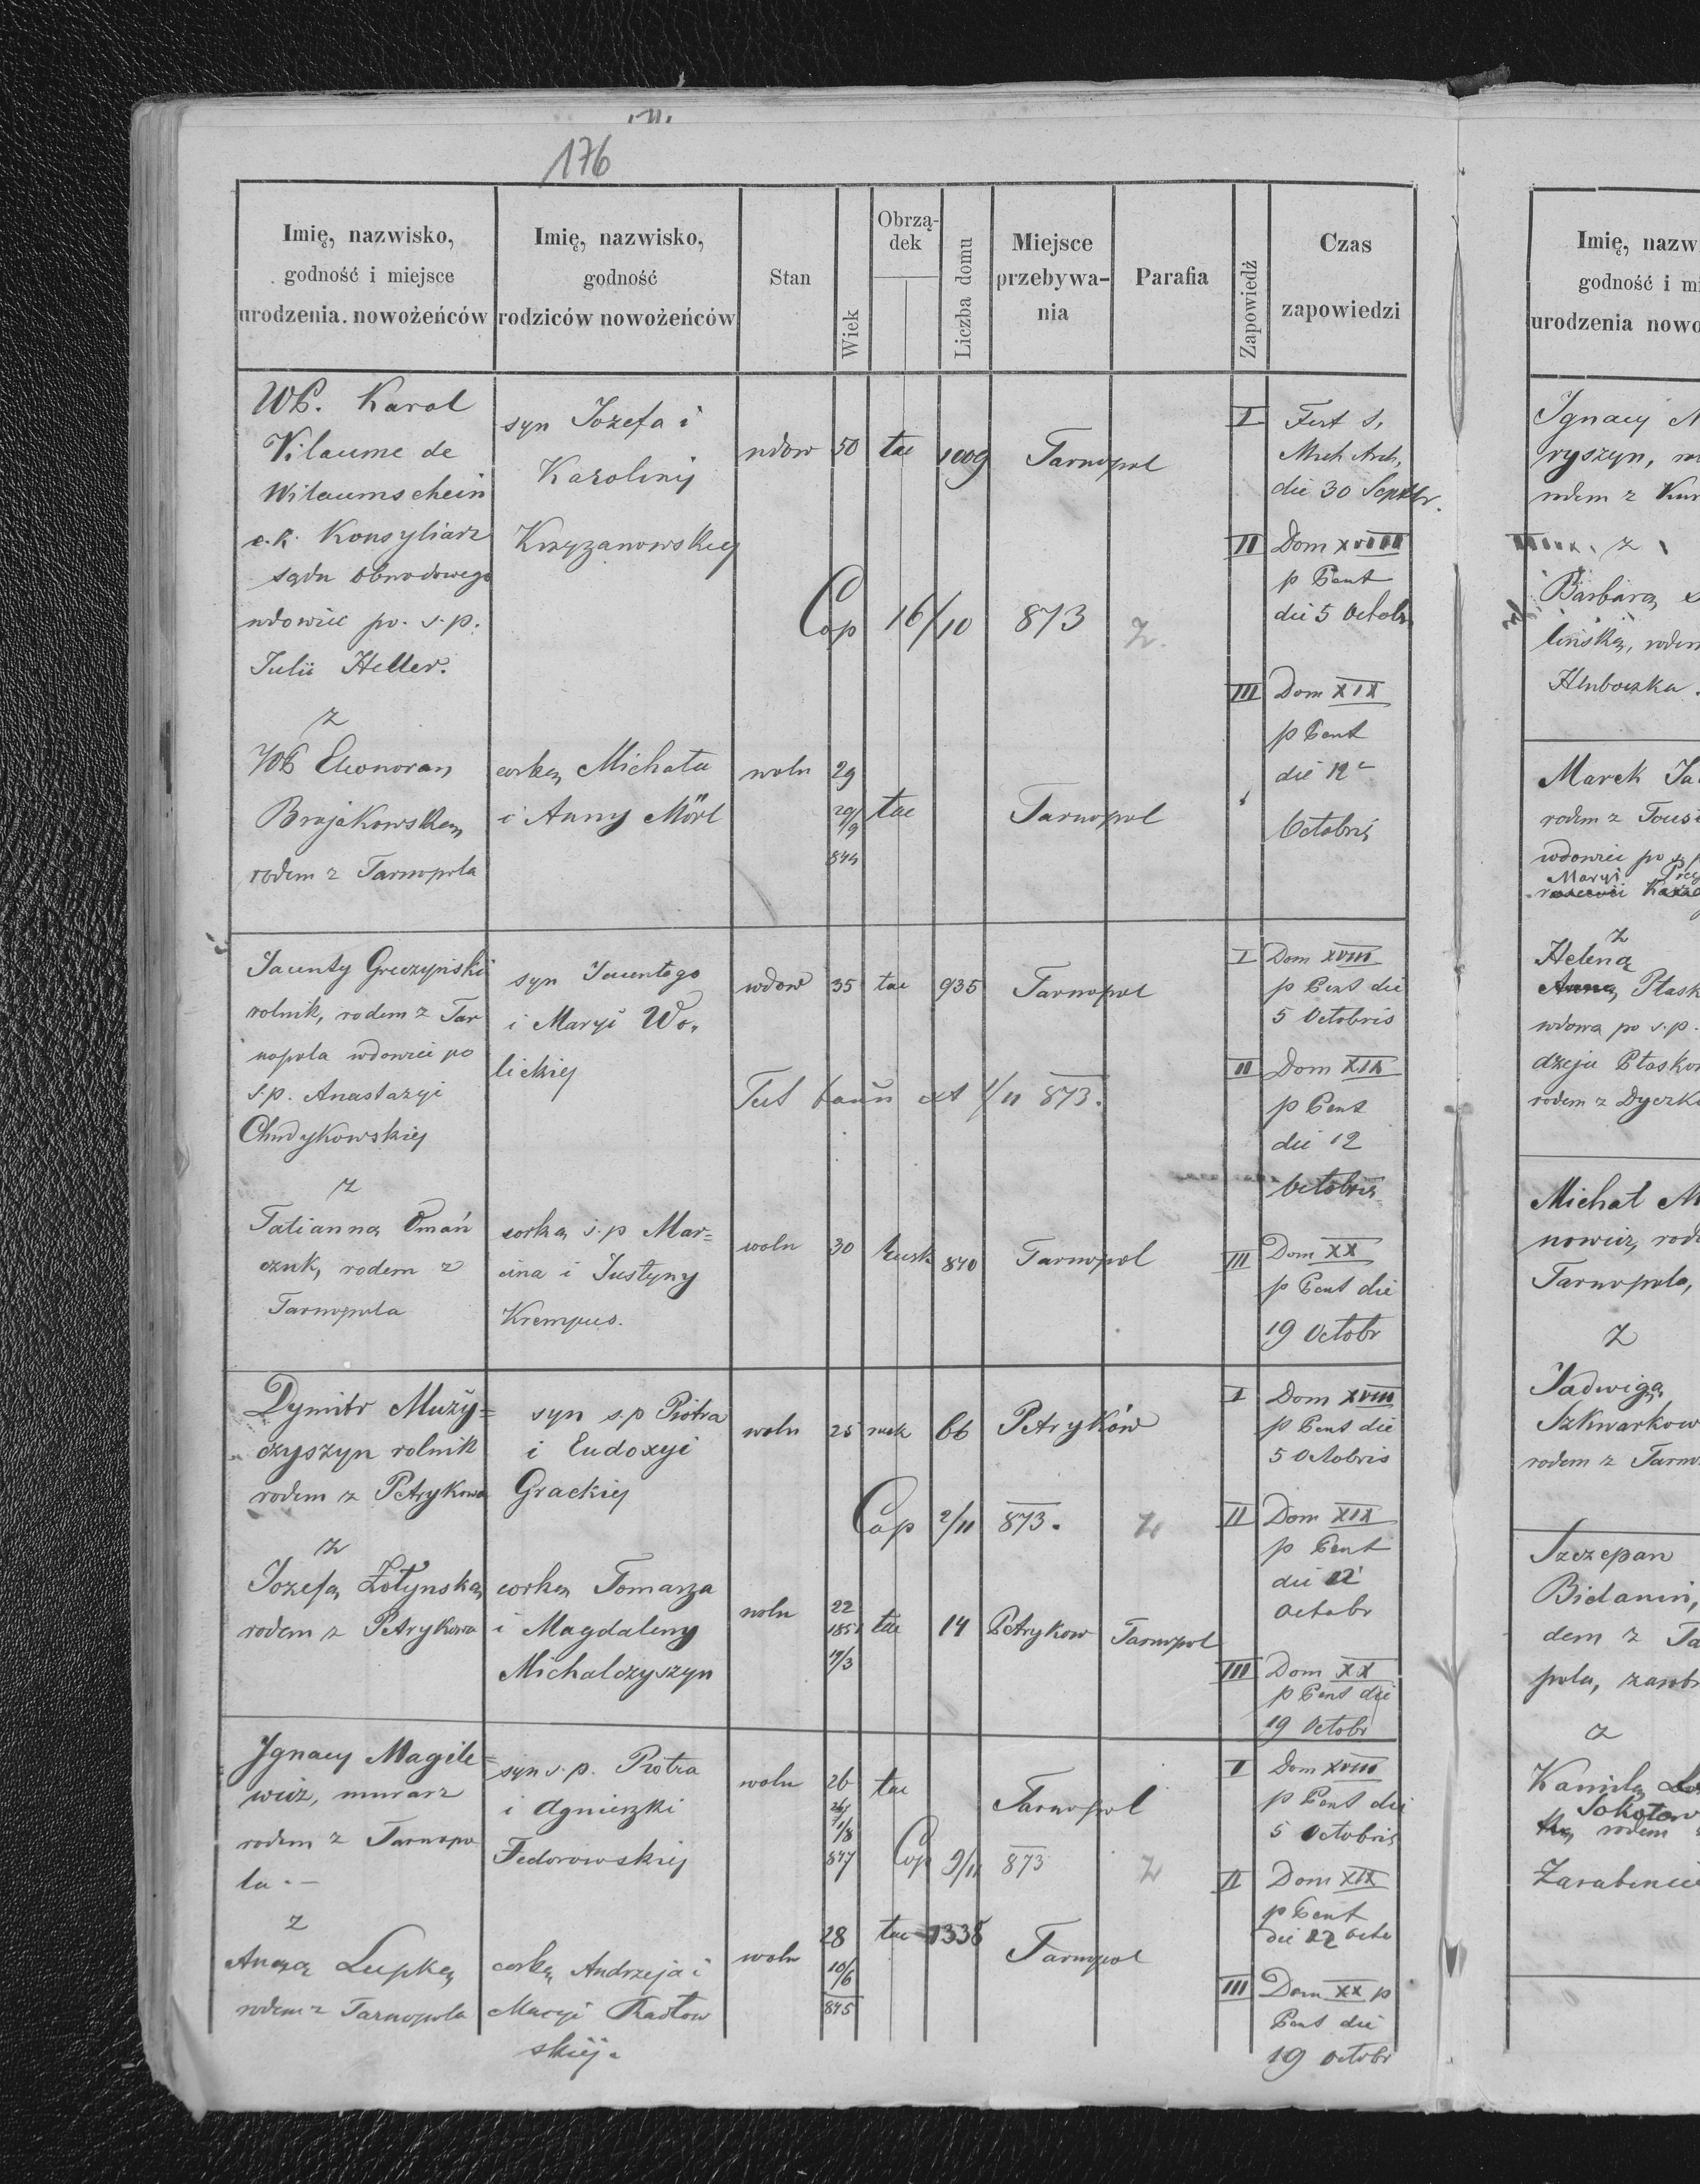 176
Imię, nazwisko,
godność i miejsce
urodzenia. nowożeńców
Imię, nazwisko,
godność
rodziców nowożeńców
Stan
Wiek
Obrzą-
dek
Liczba domu
Miejsce
przebywa-
nia
Parafia
Zapowiedź
Czas
zapowiedzi
WP. Karol
Vilaume de
Wilaumschein
c.k. Konsyliarz
sądu obwodowego
wdowiec po. ś.p.
Julii Heller.
syn Jozefa i
Karoliny
Krzyzanowskiey
wdow 50 łac 1009 Tarnopol
I Fest S.
Mich Arch,
die 30 Septbr.
II Dom XVIII
p Pent
die 5 Octobr
Cop 16/10 873 Z.
III Dom XIX
p Pent
die 12
Octobris
z
WP Eleonorą
Brajakowską
rodem z Tarnopola
corką Michała
i Anny Mörl
woln 29
29/9
844
łac Tarnopol
Jacenty Greczyński
rolnik, rodem z Tar
nopola wdowiec po
s.p. Anastazyi
Chudykowskiej
syn Jacentego
i Maryi Wo-
lickiej
wdow 35 łac 935 Tarnopol
I Dom XVIII
p Pent die
5 Octobris
II Dom XIX
p Pent
die 12
Octobris
1/11 873.
z
Tatianną Omań
czuk, rodem z
Tarnopola
corką ś.p Mar=
cina i Justyny
Krempus.
woln 30 Rusk 840 Tarnopol
III Dom XX
p Pent die
19 Octobr
Dymitr Muzy=
czyszyn rolnik
rodem z Petrykowa
syn s.p Piotra
i Eudoxyi
Grackiej
woln 25 rusk 66 Petryków
I Dom XVIII
p Pent die
5 Octobris
Cop 2/11 873. Z
II Dom XIX
p Pent
die 12
Octobr
z
Jozefą Żołynską
rodem z Petrykowa
corką Tomasza
i Magdaleny
Michalczyszyn
woln 22
1851
łac 14 Petrykow Tarnopol
III Dom XX
p Pent die
19 Octobr
Ignacy Magile=
wicz, murarz
rodem z Tarnopo
la.—
syn s.p. Piotra
i Agnieszki
Fedorowskiej
woln 26
847
łac Tarnopol
I Dom XVIII
p Pent die
5 Octobris
Cop 9/11 873 Z
II Dom XIX
p Pent
die 12 octo
z
Anną Lupką
rodem z Tarnopola
corką Andrzeja i
Maryi Radłow
skiej.
woln 28
10/6
845
łac 1338 Tarnopol
III Dom XX p
Pent die
19 octobr
Imię, nazw
godność i mi
urodzenia nowo
Ignacy
ryszyn,
rodem z
z
Barbarą
lińską, rodem
Hłuboczka.
Marek
rodem z
wdowiec po ś p
Maryi
z
Heleną
Anną Płask
wdowa po s.p.
dzeju Płasko
rodem z Dyczk
Michał
nowicz, rod
Tarnopola,
z
Jadwigą
Szkwarkow
rodem z Tarno
Szczepan
Bidanin,
dem z Ta
pola, zarob
z
Kamilą
Sokołow
rodem
Zarabenci